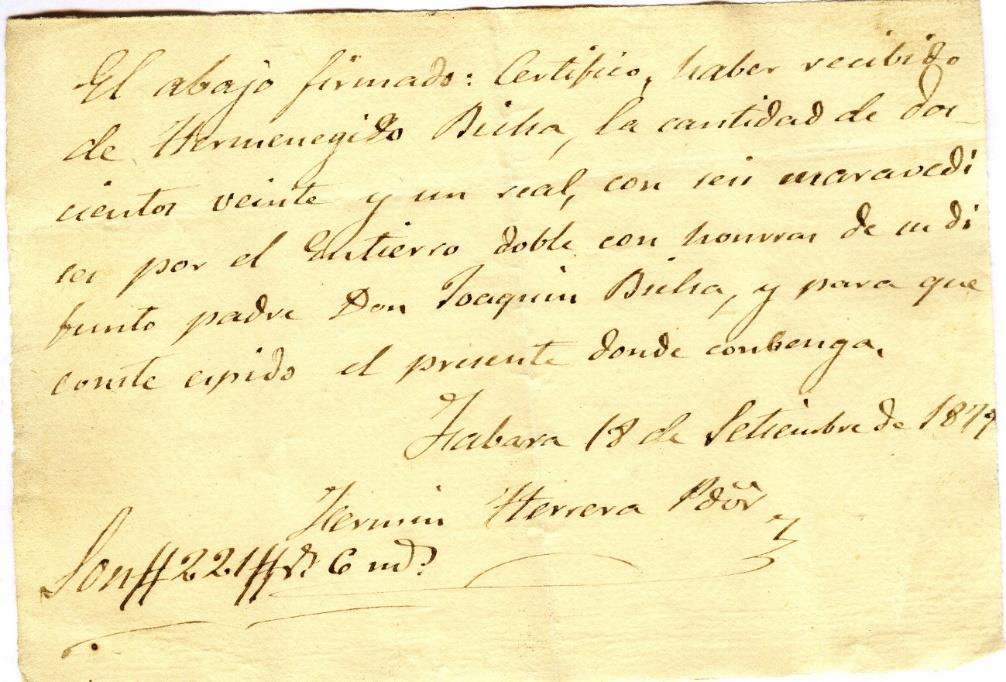 El abajo firmado: Certifico, haber recibido
de Hermenegildo Bielsa, la cantidad de dos-
cientos veinte y un real, con seis maravedi
ses por el Entierro doble con honrras de su di
funto padre Don Joaquin Bielsa, y para que
conste espido el presente donde conbenga.
Fabara 18 de Setiembre de 1877
Fermin Herrera
Son # 221 # rs. 6 ms.